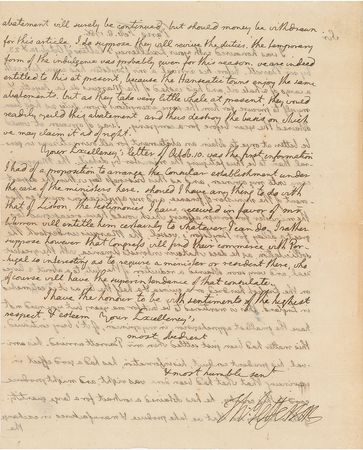 abatement will surely be continued, but should money be withdrawn
for this article, I do suppose they will revise the duties. the temporary
form of the indulgence was probably given for this reason. we are indeed
entitled to this at present, because the Hanseatic towns enjoy the same
abatements but as they take very little weals at present, they would
readily yield this abatement, and thus destroy the basis on which
we may claim it as of right.
Your Excellency's letter of Octob. 10. was the first information
I had of a proposition to arrange the Consular establishment under
the care of the ministers here. should I have any thing to do with
that of Lisbon, the testimonies I have received in favor of mr
will entitle him certainly to whatever I can do. I rather
suppose however that Congress will find their commerce with Por-
tugal so interesting as to require a minister or resident there, who
of course will have the superintendence of that consulate.
I have the honour to be with sentiments of the highest
respect & esteem Your Excellency's
most obedient
& most humble servt
Th: Jefferson